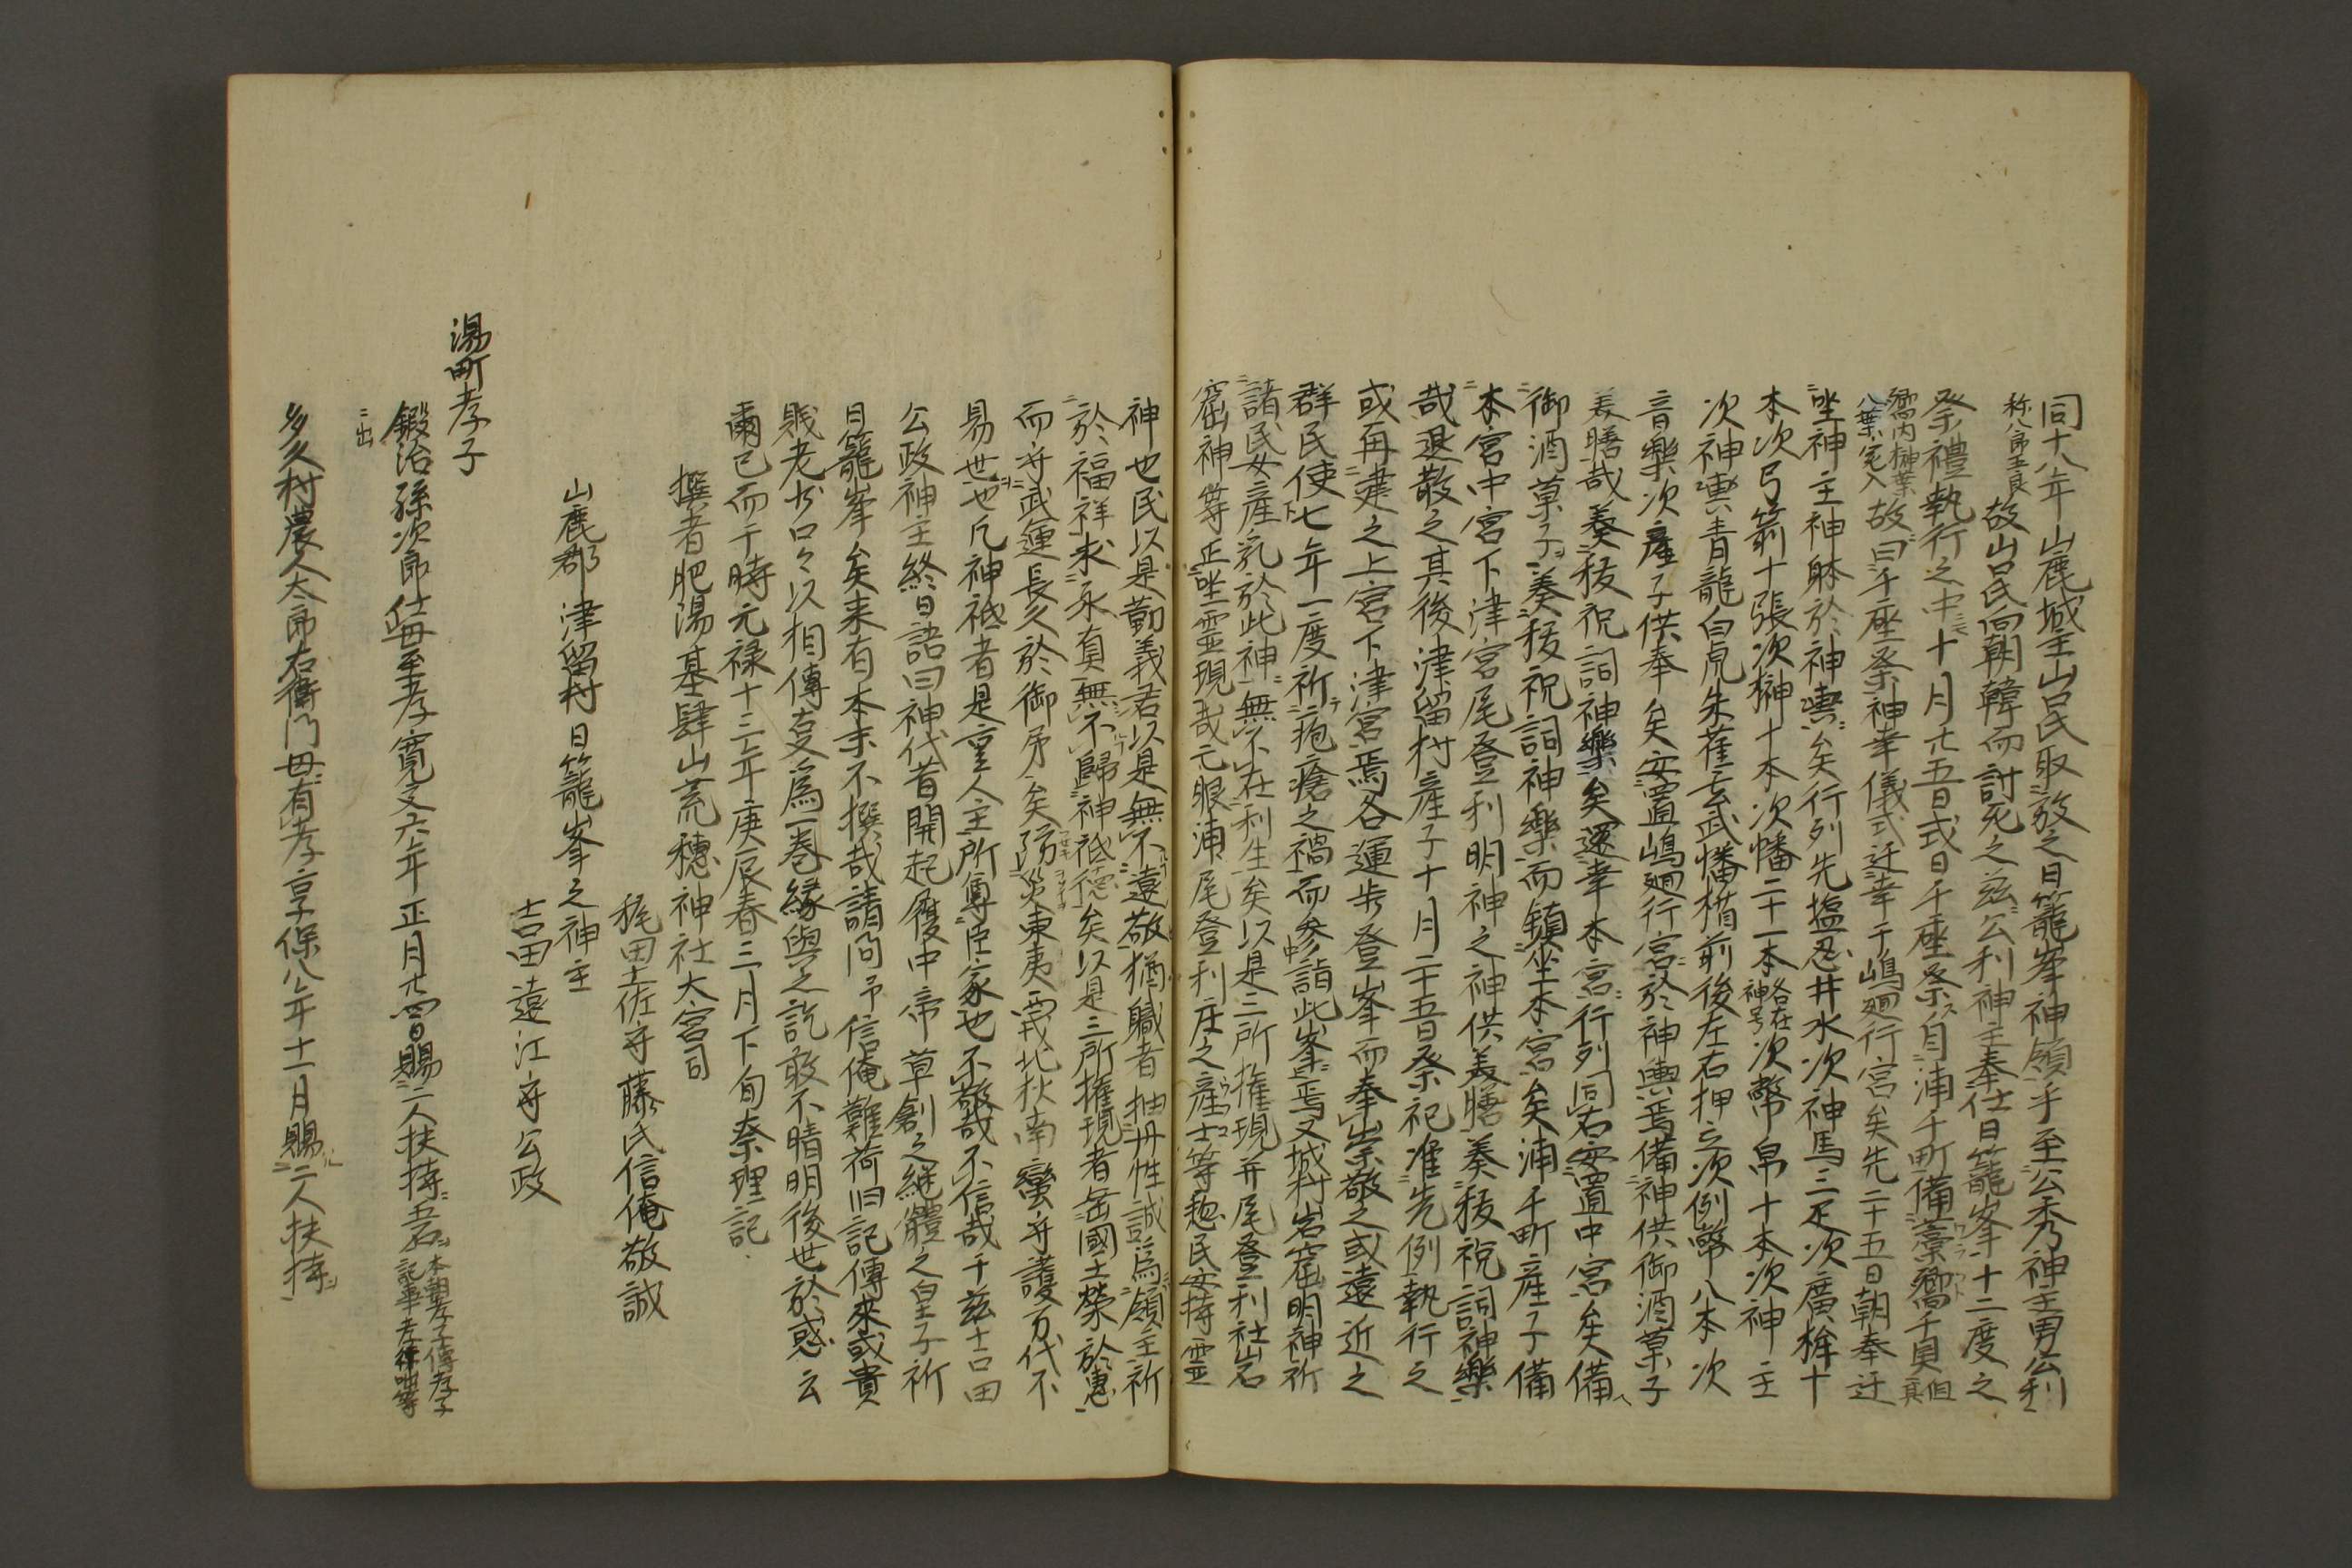 同十八年山鹿城主山口氏取放之日籠峯神領乎至公秀神主男公利
称八郎五良 故山口氏向朝韓而討死之兹公利神主奉仕日籠峯十二度之
祭禮執行之中十月廿五日式日千座祭自浦千町備藁鄕千貝但貝
鄕内榊葉八葉宛入 故曰千座祭神幸儀式迁幸于嶋廻行宮矣先二十五日朝奉迁
坐神主神躰於神輿矣行列先塩忍井水次神馬三疋次廣桙十
本次弓箭十張次榊十本次幡二十一本各在神号次幣帛十本次神主
次神輿青龍白虎朱雀玄武幡楯前後左右押立次例幣八本次
音樂次産子供奉矣安置嶋廻行宮於神輿焉備神供御酒菓子
美膳哉奏秡祝詞神樂矣還幸本宮行列同右安置中宮矣備
御酒菓子奏秡祝詞神樂而鎮坐本宮矣浦千町産子備
本宮中宮下津宮尾登利明神之神供美膳奏秡祝詞神樂
哉退散之其後津留村産子十月二十五日祭祀准先例執行之
或再建之上宮下津宮焉各運歩登峯而奉崇敬之或遠近之
群民使七年一度祈疱瘡之禍而参詣此峯焉又城村岩窟明神祈
諸民女産乳於此神無不在利生矣以是二所権現并尾登利社岩
窟神等正坐霊現哉元眼浦尾登利庄之産士等惣民安持霊
神也民以是勤義君以是無不遠敬猶職者抽丹性誠為領主祈
於福祥求永貞無不歸神祗德矣以是三所権現者岳國土榮於惠
而守武運長久於御矛矣防災東夷西戎北狄南蠻守護万代不
易世也凡神祗者是重人主所尊臣家也不敬哉不信哉于兹吉田
公政神主終日語曰神代昔開起履中帝草創之継體之皇子祈
日籠峯矣来有本末不撰哉請問予信俺難荷旧記傳來或貴
賎老少口々以相傳支為一巻縁與之説敢不晴明後世於惑云
爾已而于時元禄十三年庚辰春三月下旬奏理記
撰者肥湯基肆山荒穂神社大宮司
梶田土佐守藤氏信俺敬誠
山鹿郡津留村日籠峯之神主
吉田遠江守公政
湯町孝子
鍛冶孫次郎仕母至孝寛文六年正月廿四日賜二人扶持五石本朝孝子傳孝子記事孝穂咄等
ニ出
多久村農人太郎右衛門母有孝享保八年十一月賜二人扶持